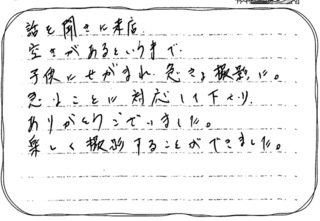 話を聞きに来店
空きがあるというまで、
子供にせがまれ、急きょ撮影に。
急なことに対応して下さり、
ありがとうございました。
楽しく撮影することができました。